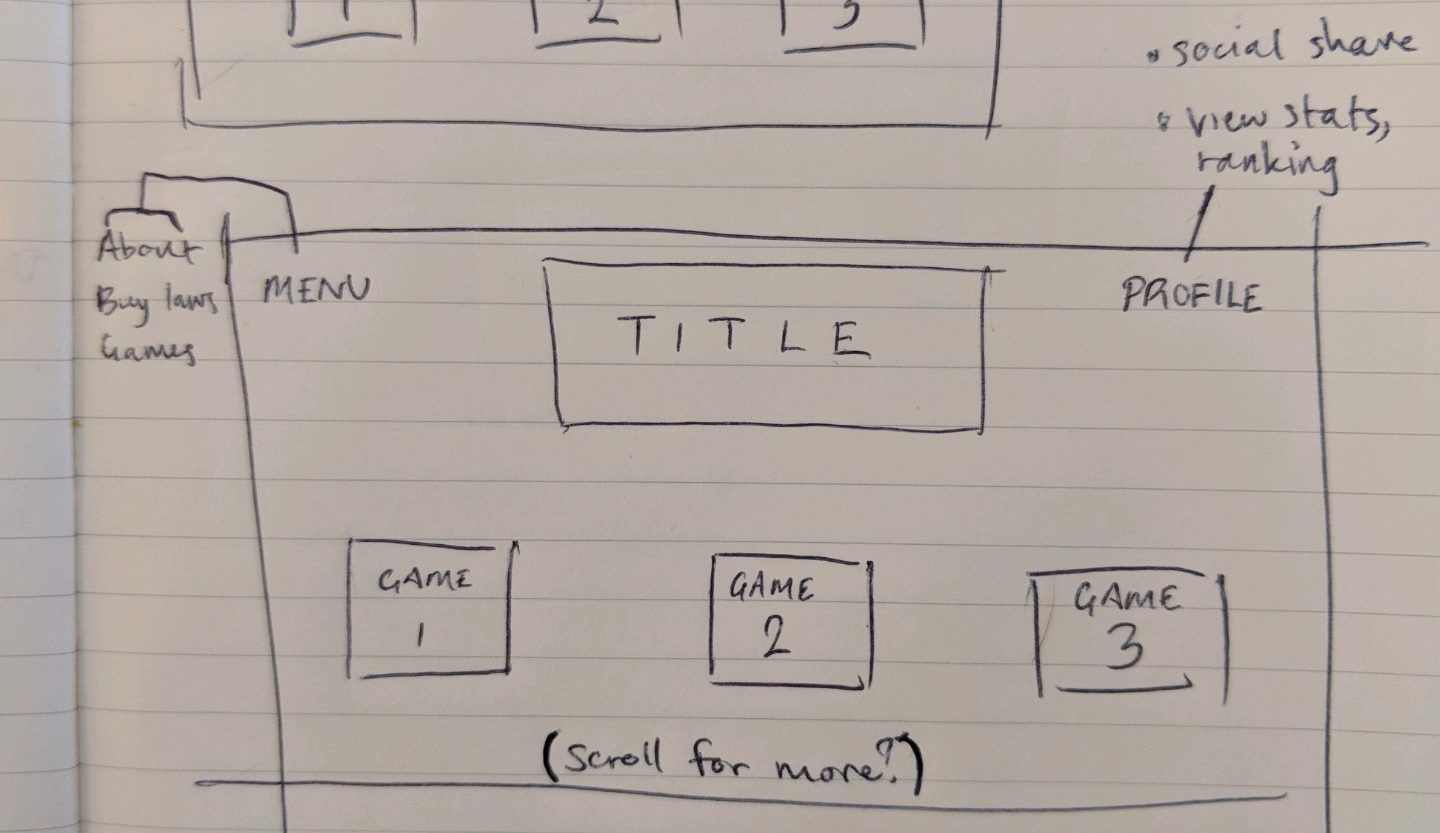 1 2 3
• social share
• view stats,
ranking
About
Buy laws
Games
MENU
TITLE
PROFILE
GAME
1
GAME
2
GAME
3
(Scroll for more?)